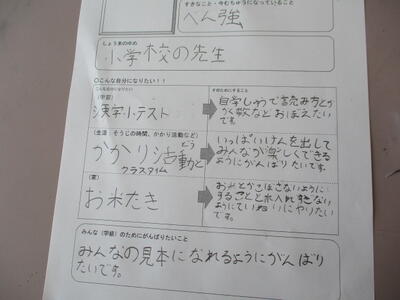 すきなこと・今むちゅうになっていること
べん強
しょう来のゆめ
小学校の先生
○こんな自分になりたい！！
こんな自分になりたい
そのためにすること
(学習)
漢字小テスト
自学しゅうで読み方とか
かく数などおぼえたい
です。
(生活・そうじの時間、かかり活動など)
かかり活動と
どう
クラスタイム
いっぱいいけんを出して
みんなが楽しくできる
ようにがんばりたいです。
(家)
お米たき
お米とかこぼさないように
することと水入れすぎない
ようにていねいにやりたい
です。
みんな(学級)のためにがんばりたいこと
みんなの見本になれるようにがんばり
たいです。